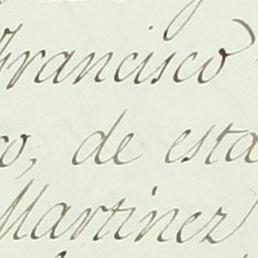 Francisco
co, de esta
Martinez